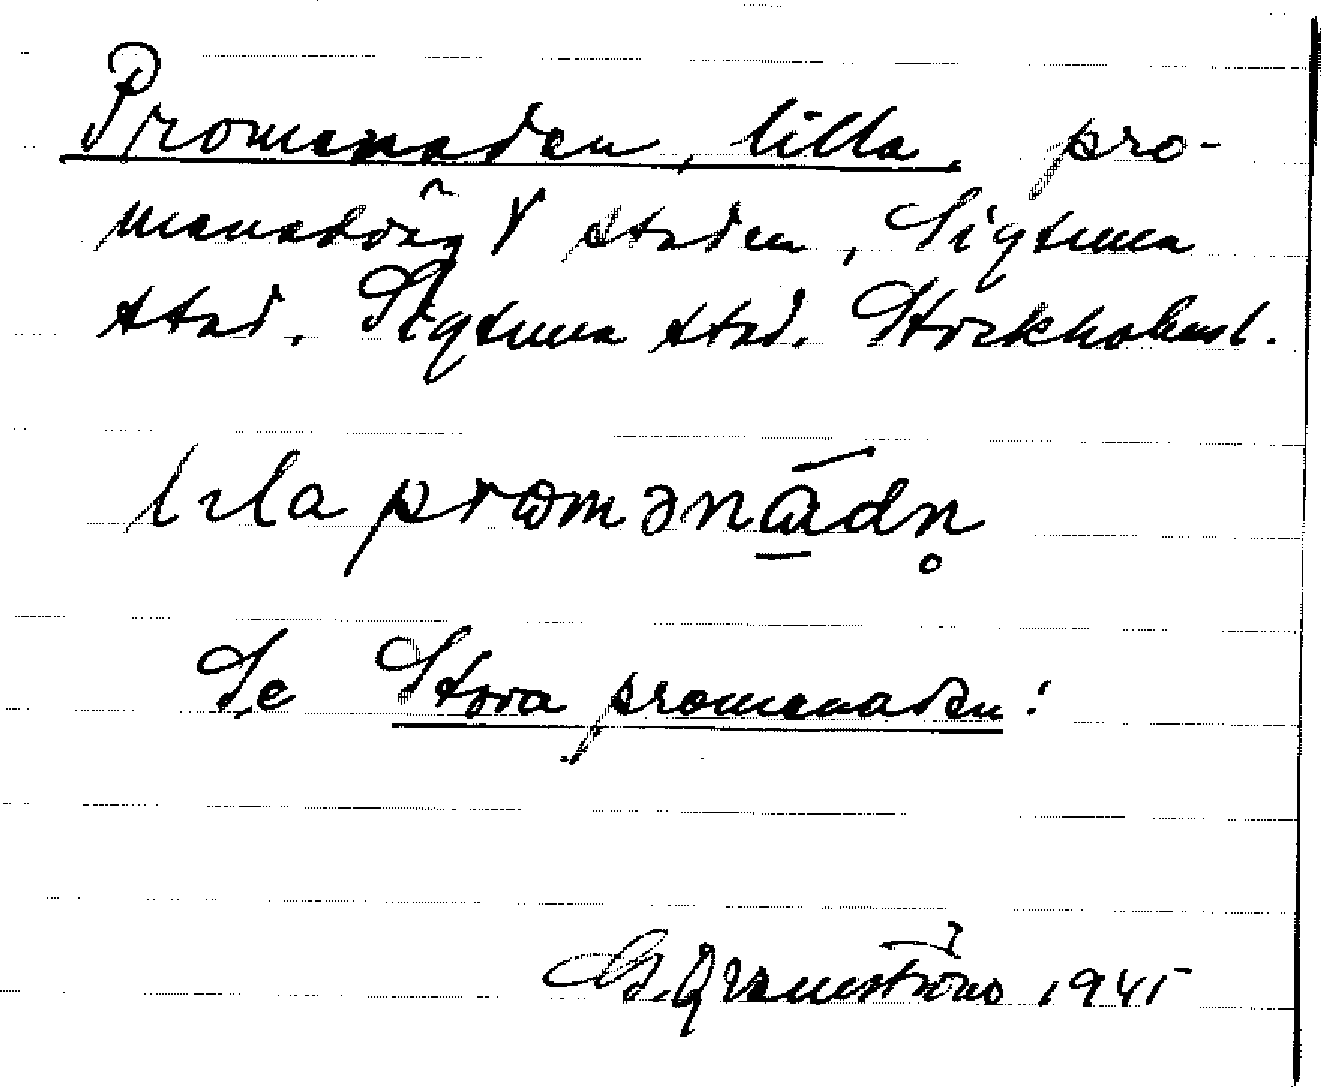 Promenaden, lilla. pro-
menadväg V staden, Sigtuna
stad. Sigtuna stad. Stockholms l.
lɩla promənādn̥
Se Stora promenaden!
G. Qvarnström 1945